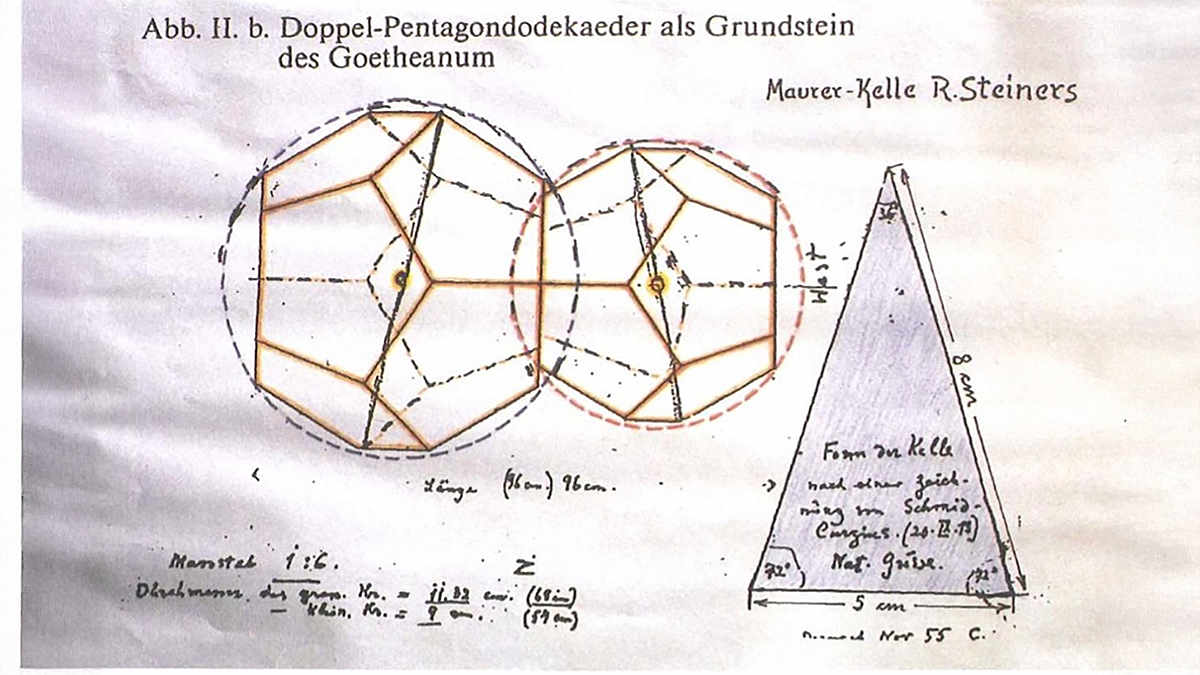 Abb. II. b. Doppel-Pentagondodekaeder als Grundstein
des Goetheanum
Maurer-Kelle R.Steiners
36°
West
8 cm
Form der Kelle
nach einer Zeich-
nung von Schmid-
Curzius. (20.IX.13)
Nat. Grösse.
72° 72°
5 cm
Länge (96 cm) 96 cm.
Masstab 1:6.
Durchmesser des gross. Kr. = 11.33 cm. (68 cm)
— klein. Kr. = 9 cm. (54 cm)
55 C.